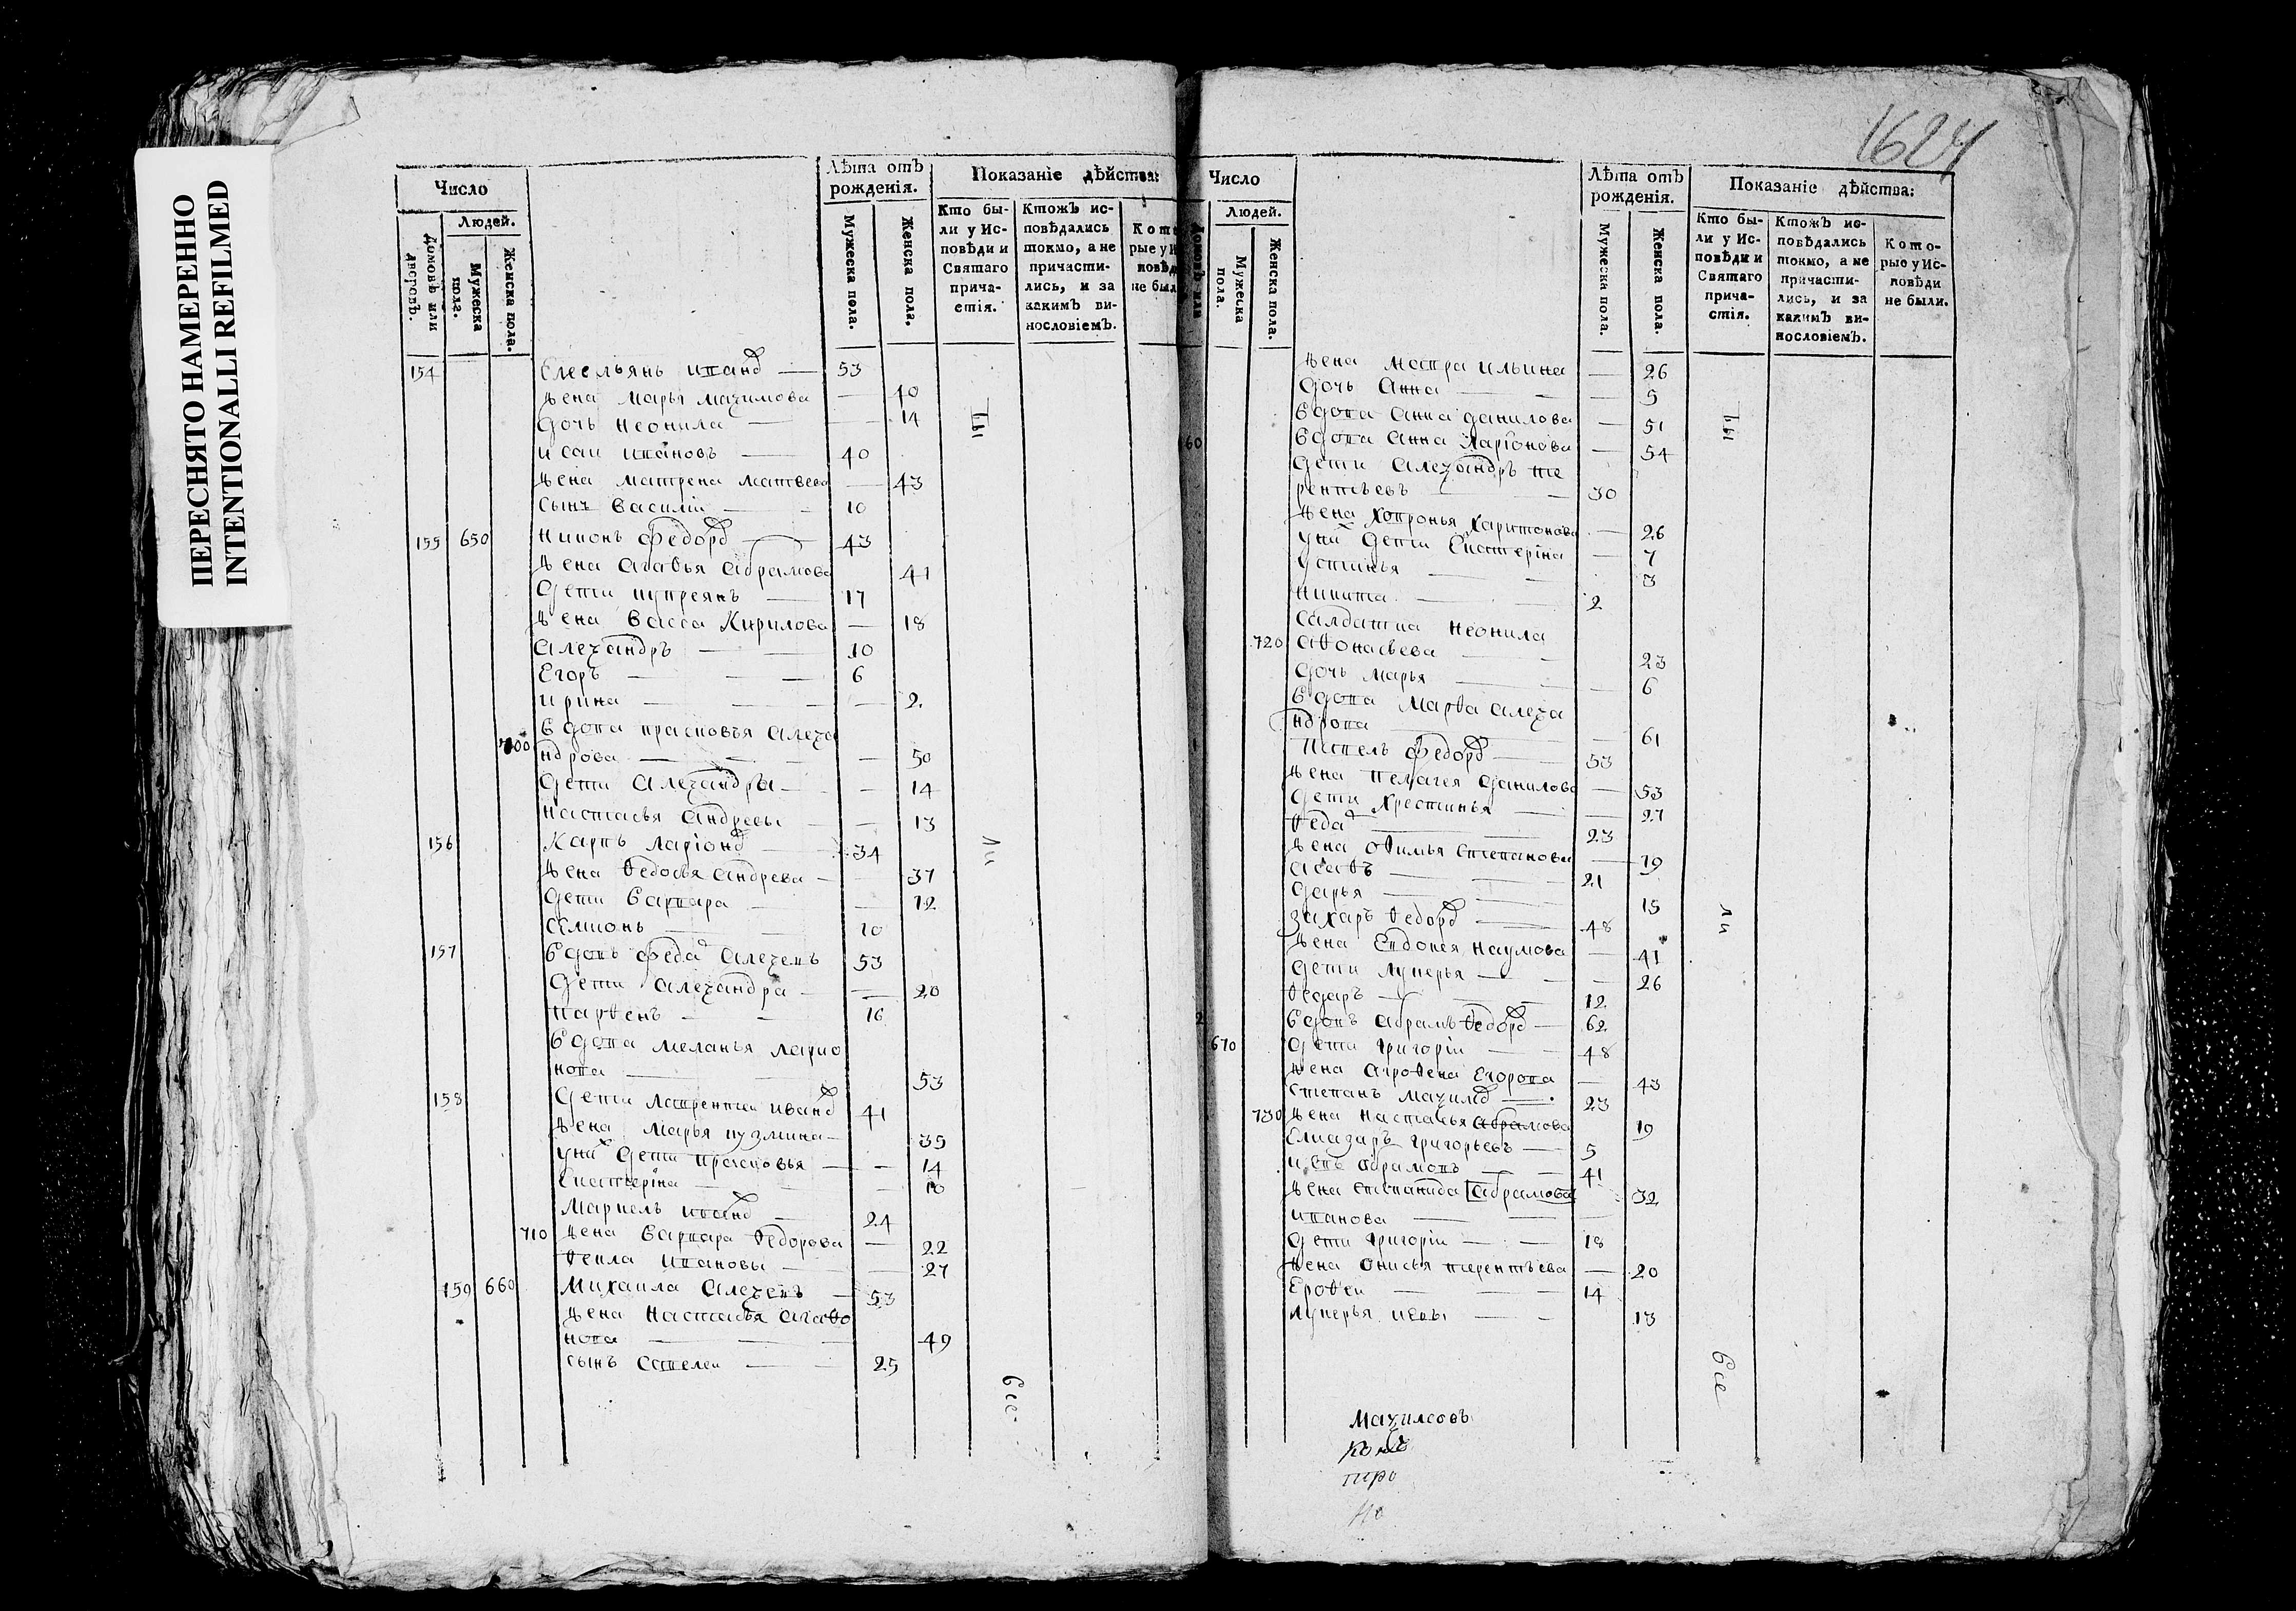 ПЕРЕСНЯТО НАМЕРЕННО
INTENTIONALLI REFILMED
1624
Число
Лѣта отъ рожденія.
Показаніе дѣйства:
Людей.
Домовъ или дворовъ.
Мужеска пола.
Женска пола.
Мужеска пола.
Женска пола.
Кто были у Исповѣди и Святаго причастія.
Ктожъ исповѣдались токмо, а не причастились, и за какимъ винословіемъ.
154 Емельянъ Иванов — 53
жена Марья Маѯимова — 40
дочь Неонила — 14
Исаи Ивановъ — 40
жена Матрена Матвеева — 43
сынъ Василіи — 10
155 650 Никонъ Федоров — 43
жена Агаѳья Абрамова 41
дети Купреянъ — 17
жена Васса Кирилова — 18
Алеѯандръ — 10
Егоръ — 6
Ирина — 2
вдова Прасковья Алеѯа
700 ндрова — 50
дети Алеѯандра — 14
Настасья Андревы — 13
156 Карпъ Ларіонов — 34
жена Ѳедосья Андрева — 37
дети Варвара — 12
Симионъ — 10
157 вдовъ Федор Алеѯевъ 53
дети Алеѯандра — 20
Парѳенъ — 16
вдова Меланья Ларио
нова — 53
158 дети Лаврентии Иванов 41
жена Марья Кузмина — 35
у них дети Прасковья — 14
Екатерина — 10
Маркелъ Иванов — 24
710 жена Варвара Ѳедорова — 22
Ѳекла Ивановы — 27
159 660 Михаила Алеѯевъ — 53
жена Настасья Агаѳо
нова — 49
сынъ Савелеи — 25
Бы
ли
все
Число
Лѣта отъ рожденія.
Показаніе дѣйства:
Людей.
Мужеска пола.
Женска пола.
Мужеска пола.
Женска пола.
Кто были у Исповѣди и Святаго причастія.
Ктожъ исповѣдались токмо, а не причастились, и за какимъ винословіемъ.
Которые у Исповѣди не были.
жена Мавра Ильина — 26
дочь Анна — 5
вдова Анна Данилова — 51
160 вдова Анна Ларіонова — 54
дети Алеѯандръ Те
рентьевъ — 30
жена Ховронья Харитонова — 26
у них дети Екатеріна — 7
Устинья — 3
Никита — 2
Салдатка Неонила
720 Аѳонасьева — 23
дочь Марья — 6
вдова Марѳа Алеѯа
ндрова — 61
Павелъ Федоров — 53
жена Пелагея Данилова — 53
дети Хрестинья — 27
Ѳедор — 23
жена Оѳимья Степанова — 19
Асаѳъ — 21
Дарья — 15
Захаръ Ѳедоров — 48
жена Евдокея Наумова — 41
дети Лукерья — 26
Ѳедоръ — 12
вдовъ Абрамъ Ѳедоров — 62
670 дети Григоріи — 48
жена Агроѳена Егорова — 43
Степанъ Маѯимов — 23
730 жена Настасья Абрамова 19
Елиазаръ Григорьевъ — 5
Абрамовъ — 41
жена Степанида Абрамова 32
Иванова —
дети Григоріи — 18
жена Онисья Терентьева — 20
Ероѳеи — 14
Лукерья — 13
Бы
ли
все
Маѯимовъ